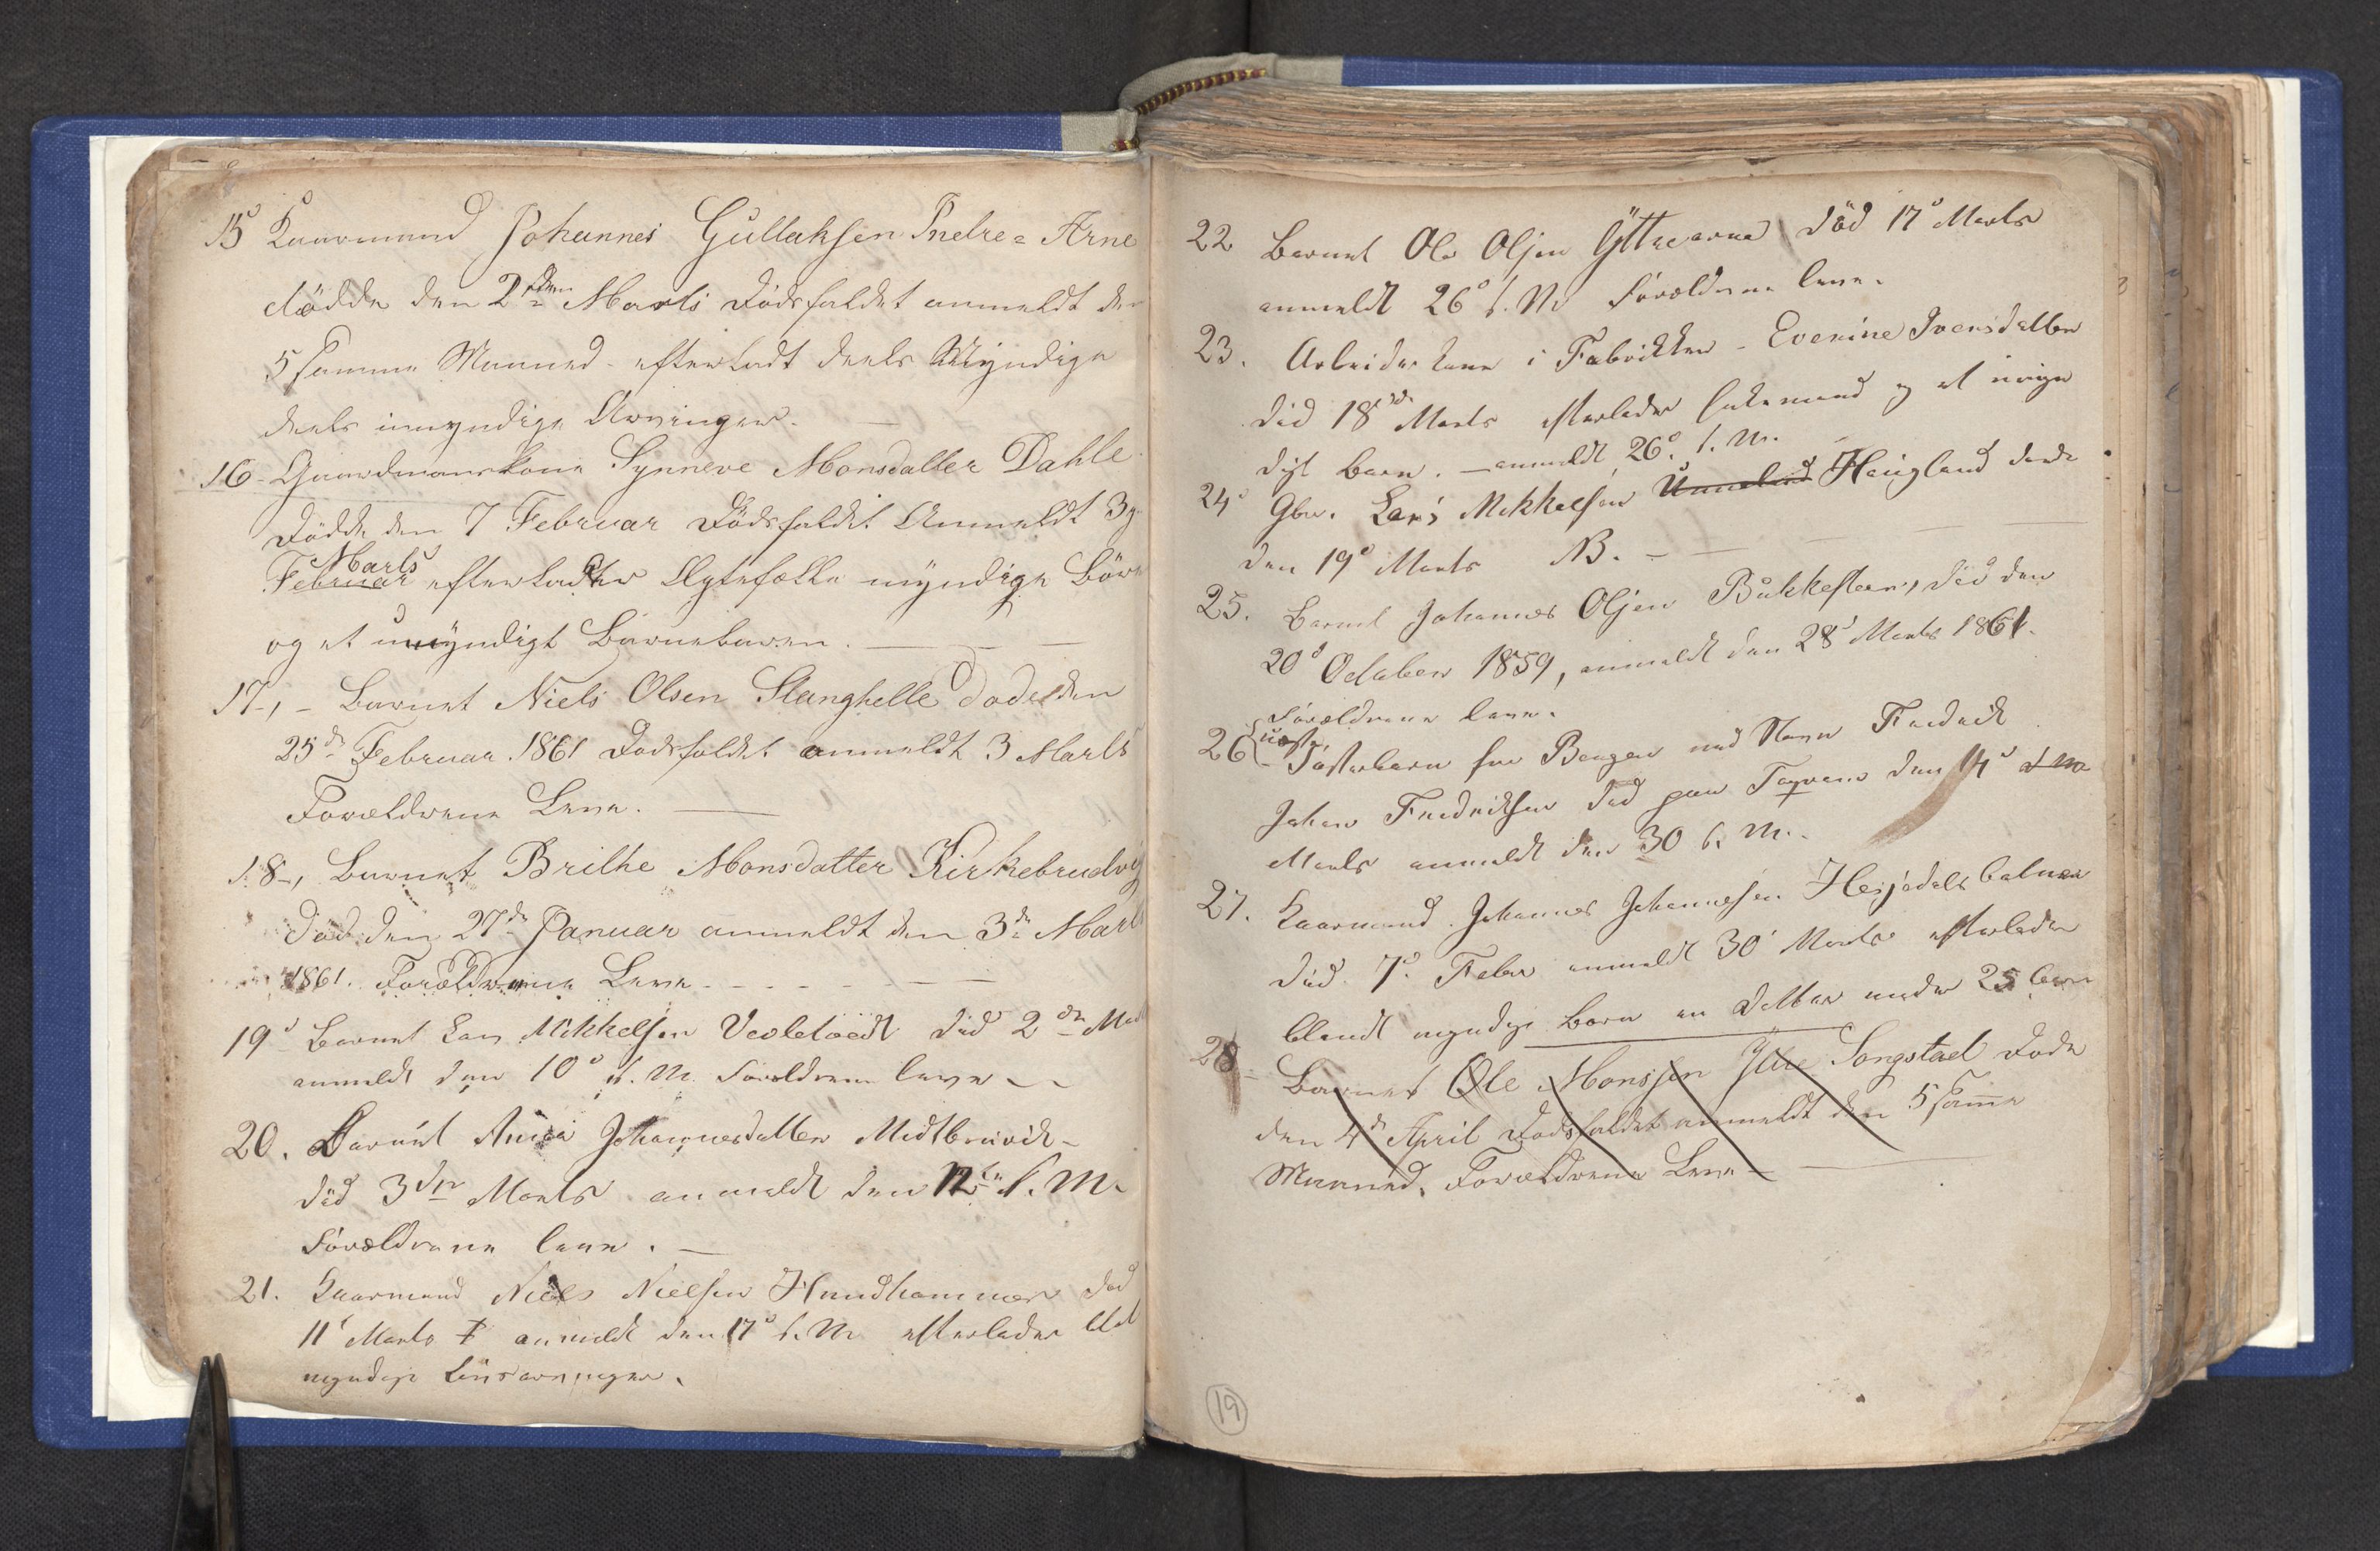 15 Kaarmand Johannes Gullaksen Indre = Arne
dödde den 2den Marts Dödsfaldet anmeldt den
5 samme Maaned - efterladt deels Myndige
deels umyndige Arvinger. —
16 - Gaardmanskone Synneve Monsdatter Dahle
Dödde den 7 Februar Dödsfaldet Anmeldt 3
Februar Marts efterlader Ægtefælle myndige Börn
og et umyndigt Barnebarn. — — —
17-, - Barnet Niels Olsen Stanghelle dode den
25de Februar 1861 Dödsfaldet anmeldt 3 Marts
Forældrene Leve. —
18-, Barnet Brithe Monsdatter Kirkebrudvig
död den 27de Januar anmeldt den 3de Marts
1861. Forældrene Leve - - - - — —
19 Barnet Lars Mikkelsen död 2den
anmeldt den 10 s. M. Forældrene leve - -
20. Barnet Anna Johannesdatter Midtbruvik -
död 3den Marts anmeldt den 12te s. M.
Forældrene leve. —
21. Kaarmand Niels Nielsen Hundhammer död
11 Marts anmeldt den 17 s. M efterlader blot
myndige Livsarvinger.
22 Barnet Ole Olsen Yttrearne död 17 Marts
anmeldt 26 s. M Forældrene leve.
23. Arbeider kone i Fabrikken - Evenine Iversdatter
död 18de Marts efterlader Enkemand og et umyn
digt barn. — anmeldt 26. s. M.
24 Gbr. Lars Mikkelsen Unneland Haugland döde
den 19 Marts NB. - — — —
25. Barnet Johannes Olsen Bukkesteen, död den
20 October 1859, anmeldt den 28 Marts 1861.
Forældrene leve.
26 - Fosterbarn fra Bergen ved Navn Fredrik
Johan Fredriksen död paa den 14 s M
Marts anmeldt den 30 s. M.
27. Kaarmand Johannes Johannesen Hesjedals
död 7. Febr anmeldt 30 Marts efterlader
blandt myndige Börn en Datter under 25
28 - Barnet Ole Monssen Ytre Songstad Döde
den 4de April Dödsfaldet anmeldt den 5 samme
Maaned, Forældrene Leve — —
19